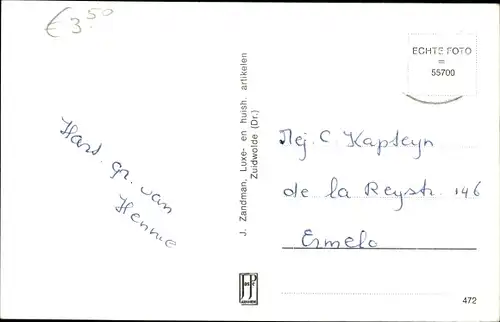 € 3.50
ECHTE FOTO
=
55700
Hart. gr. van
Hennie
J. Zandman, Luxe- en huish. artikelen
Zuidwolde (Dr.)
Mej. C Kapteyn
de la Reystr. 146
Ermelo
472